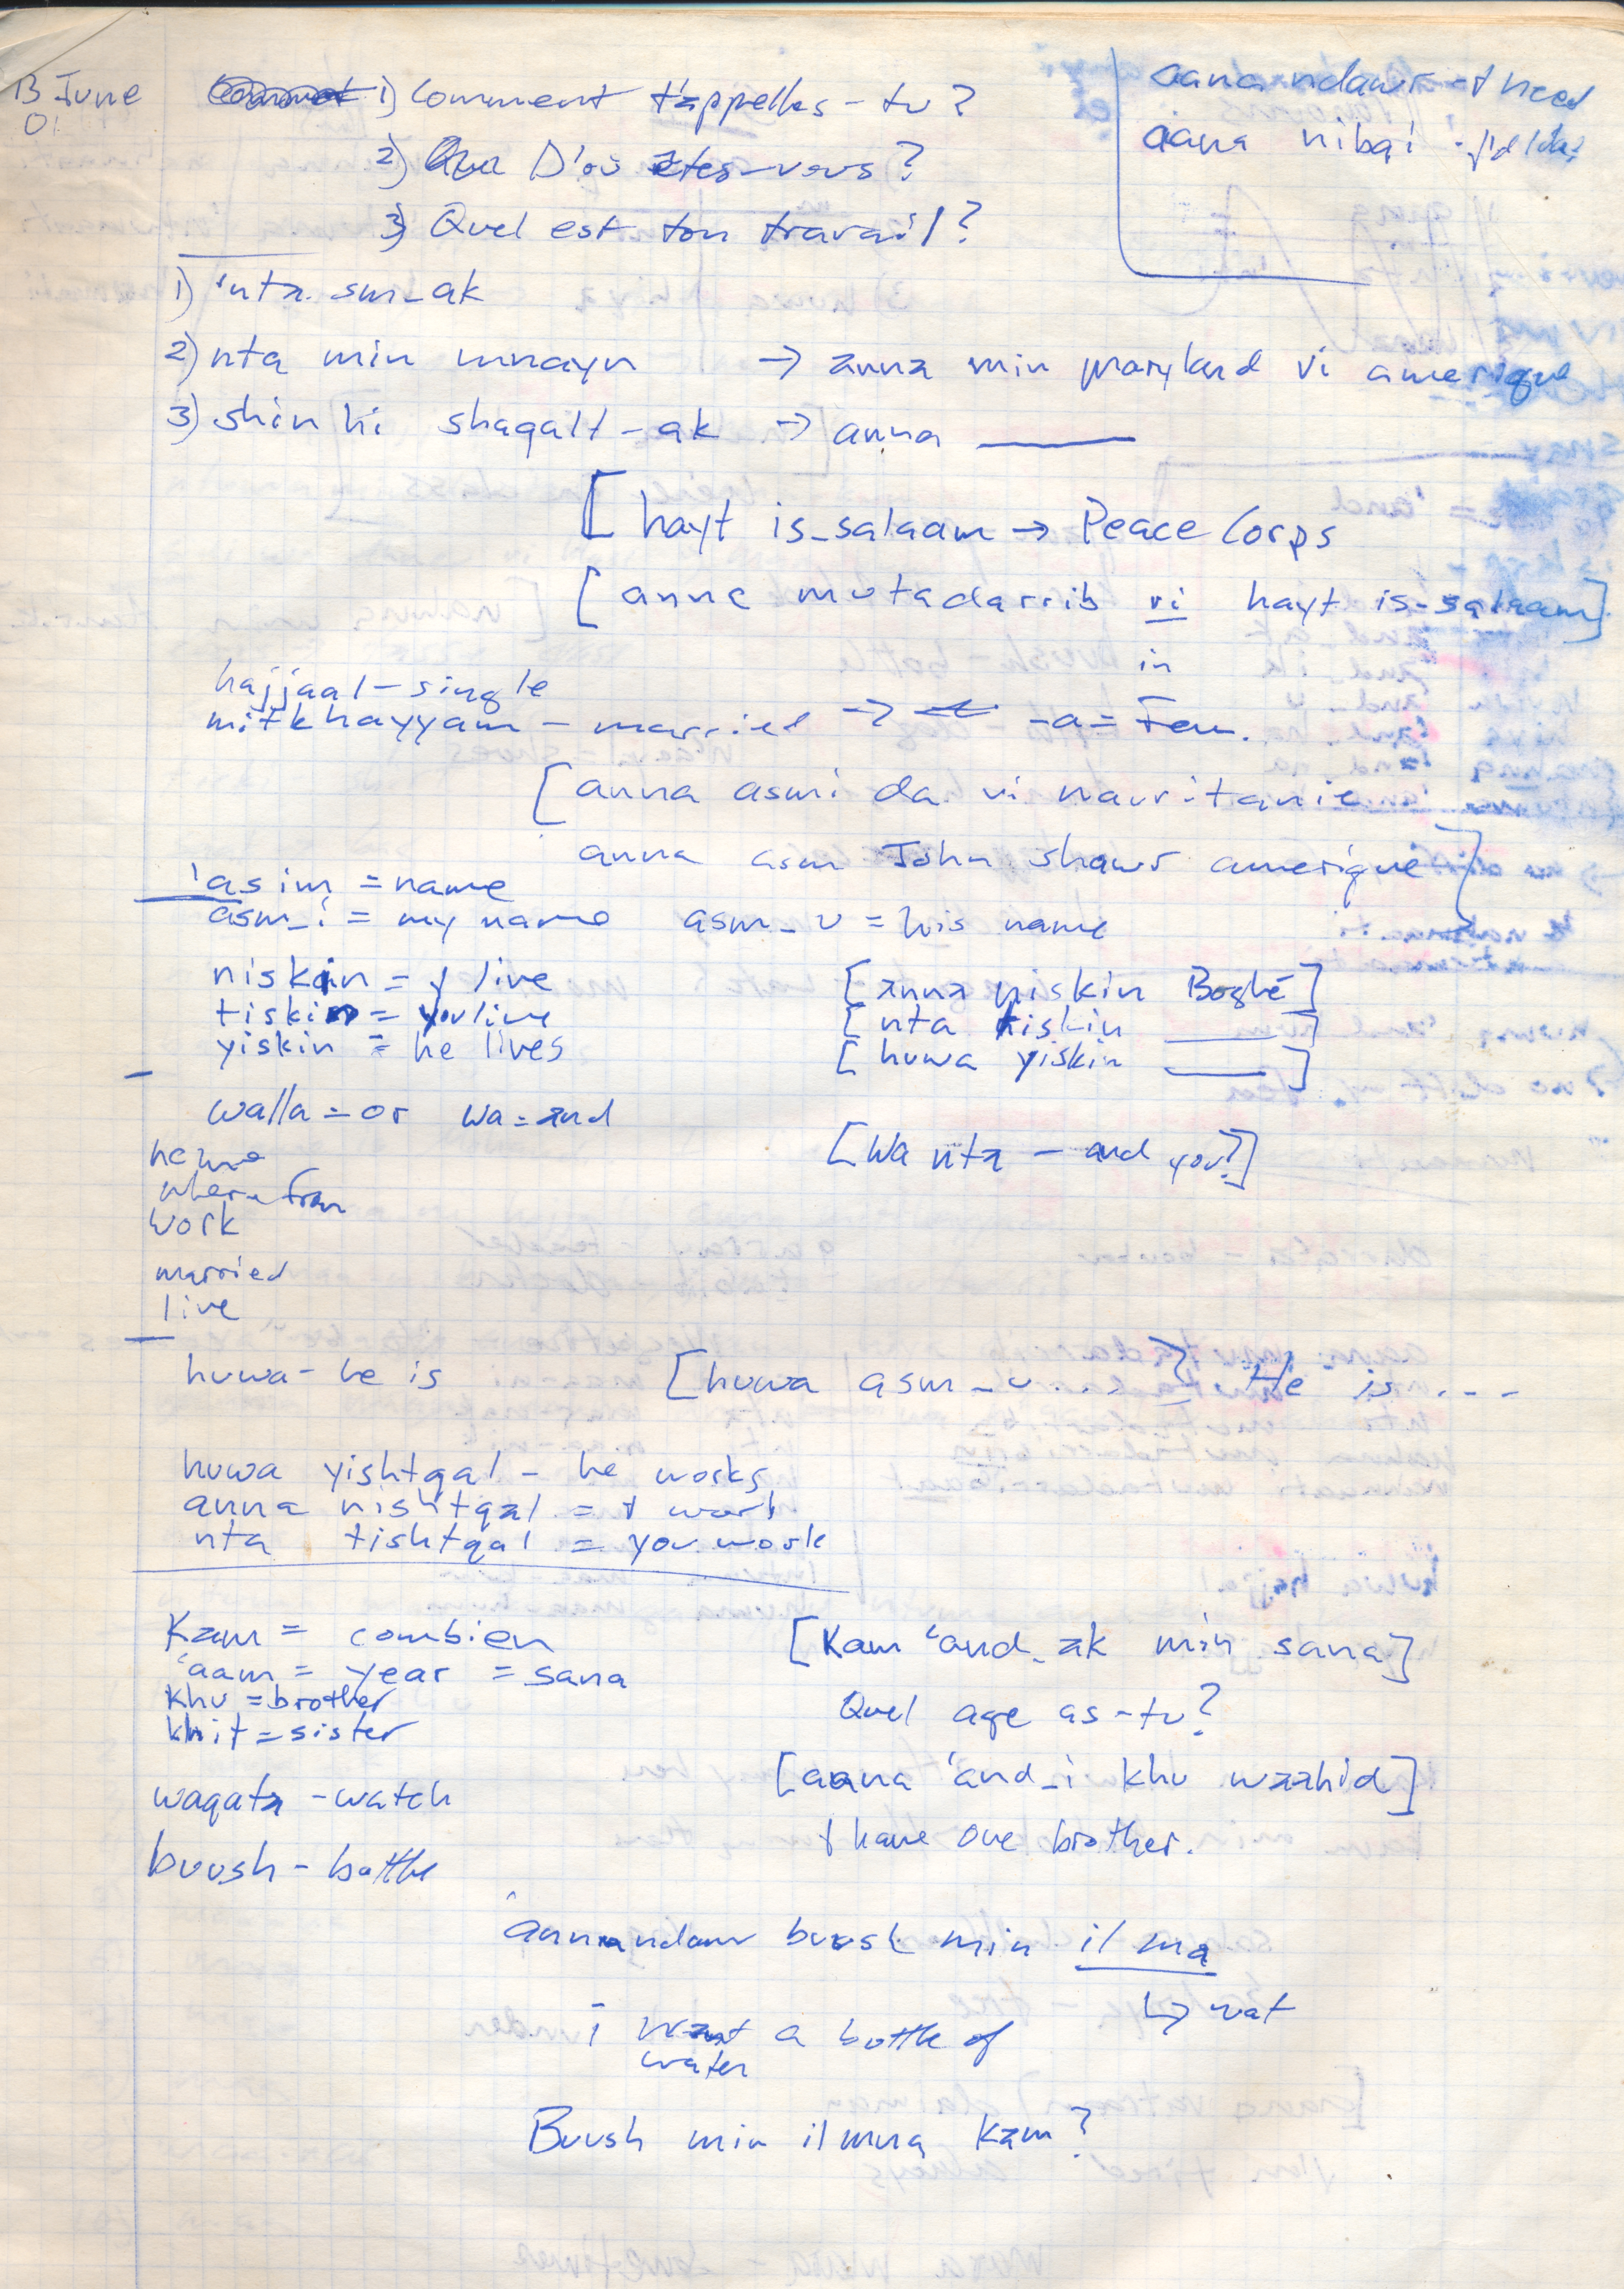 13 June 01
1) Comment t'appelles-tu?
2) D'où êtes-vous?
3) Quel est ton travail?
aana ndawr - I need
aana nibqi - I'd like
1) 'nta sm_ak
2) nta min mnayn → anna min maryland vi amerique
3) shin hi shaqalt-ak → anna ____
[hayt is_salaam → Peace Corps
[anna mutadarrib vi hayt is-salaam]
in
hajjaal - single
mitkhayyam - married → -a = Fem.
[anna asmi da vi mauritanie
anna asm John shawr amerique]
'asim = name
asm_i = my name asm_u = his name
niskin = I live [anna niskin Boghé]
tiskin = you live [nta tiskin ____]
yiskin = he lives [huwa yiskin ____]
walla = or wa = and
[Wa nta - and you?]
name
where from
work
married
live
huwa - he is [huwa asm_u ...] He is ...
huwa yishtqal - he works
anna nishtqal = I work
nta tishtqal = you work
Kam = combien [Kam 'and_ak min sana]
'aam = year = sana
khu = brother Quel age as-tu?
khit = sister
[aana 'and_i khu waahid]
waqata - watch
I have one brother.
buush - bottle
anna ndawr buush min il ma
↳ wat
i want a bottle of
water
Buush min il ma Kam?